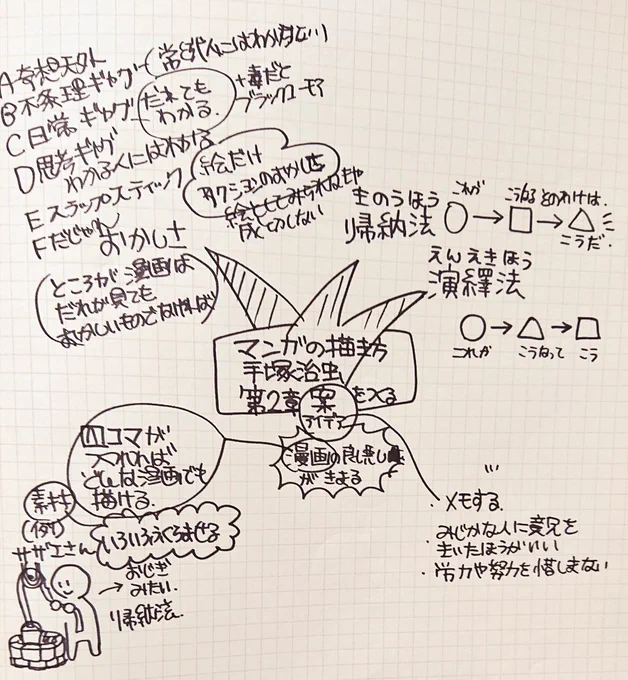 A奇想天外
常識人にはわからない
B不条理ギャグ
C日常ギャグ
だれでも
わかる
+毒だと
ブラックユーモア
D思考ギャグ
わかる人にはわかる
Eスラップスティック
絵だけ
アクションのおかしさ
絵としてみられねや
成立しない
Fだじゃれ
おかしさ
ところが漫画は
だれが見ても
おかしいものでなければ
きのうほう
帰納法
これが
こうなる
そのわけは.
こうだ.
えんえきほう
演繹法
これが
こうなって
こう
マンガの描き方
手塚治虫
第2章 案をつくる
アイデア
漫画の良し悪し
がきまる
四コマが
入れれば
どんな漫画でも
描ける.
素材
(例)
サザエさん
いろいろふくらませる
おじぎ
みたい.
帰納法.
・メモする.
・みじかな人に意見を
きいたほうがいい
・労力や努力を惜しまない